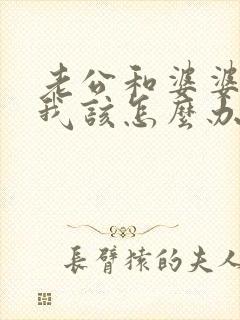 老公和婆婆
我該怎麼办
長臂猿的夫人